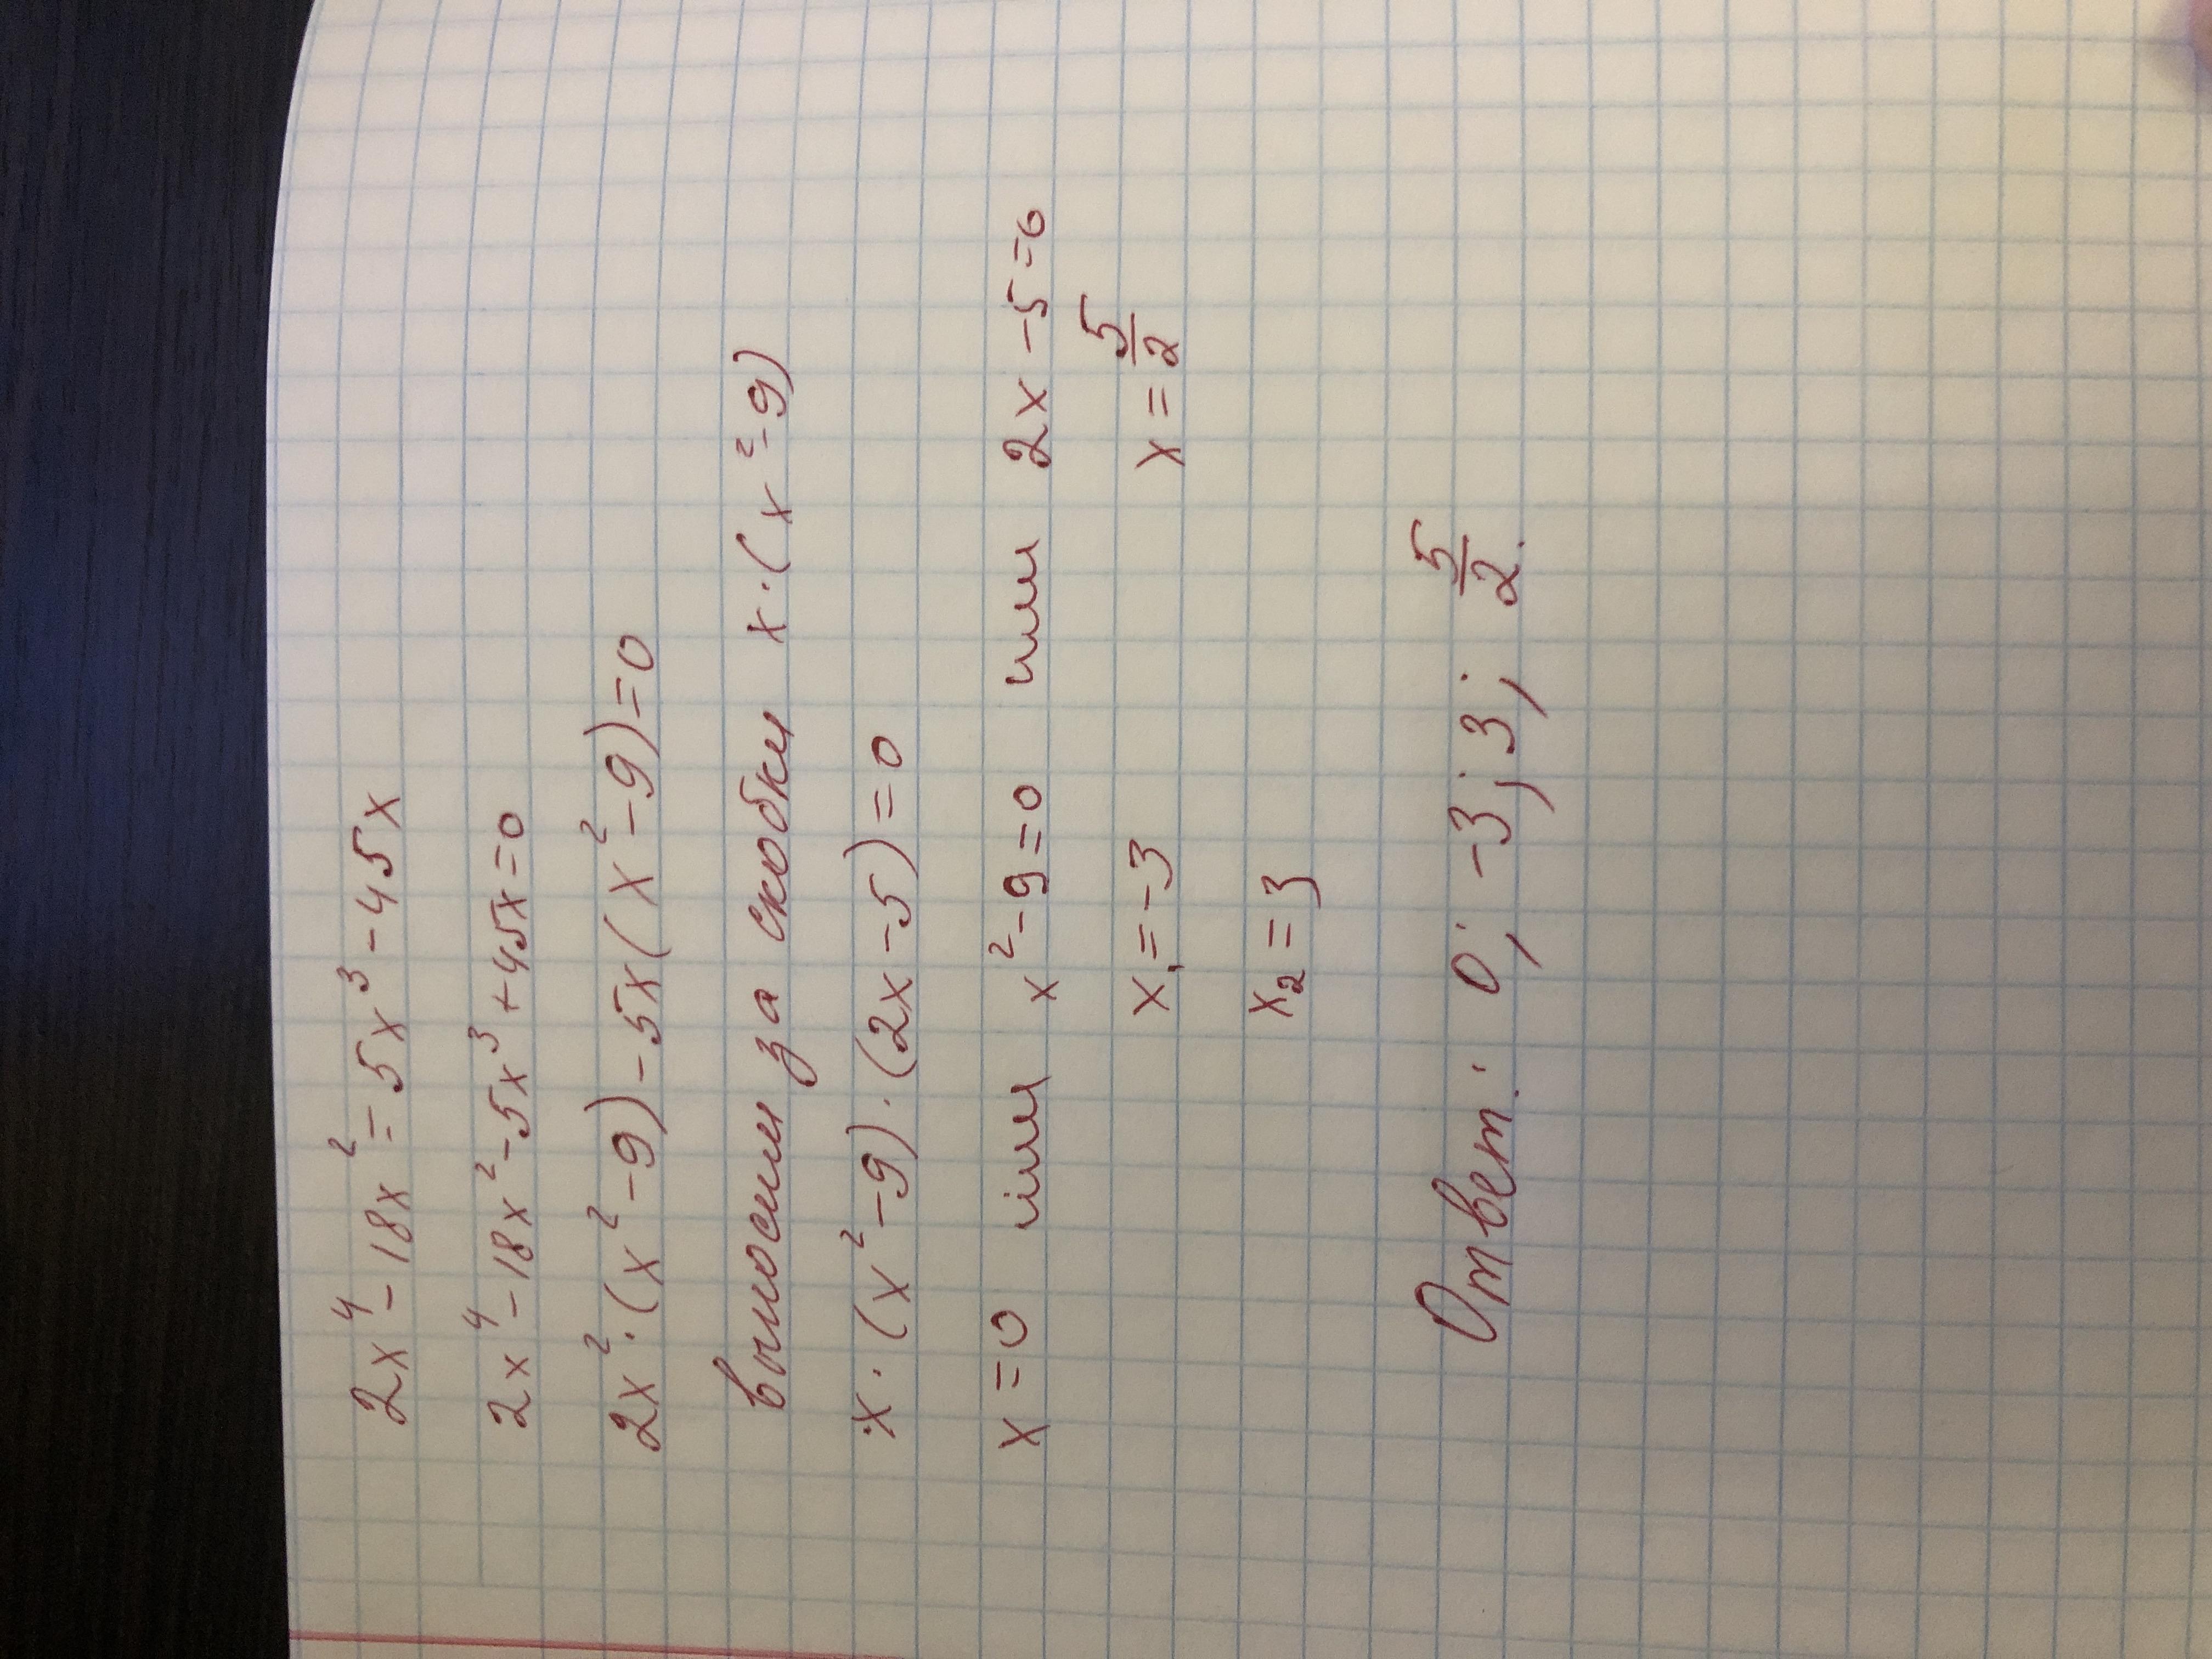 2x⁴ - 18x² = 5x³ - 45x
2x⁴ - 18x² - 5x³ + 45x = 0
2x² · (x² - 9) - 5x(x² - 9) = 0
выносим за скобки x · (x² - 9)
x · (x² - 9) · (2x - 5) = 0
x = 0 или x² - 9 = 0 или 2x - 5 = 0
x₁ = -3 x = 5/2
x₂ = 3
Ответ: 0; -3; 3; 5/2.